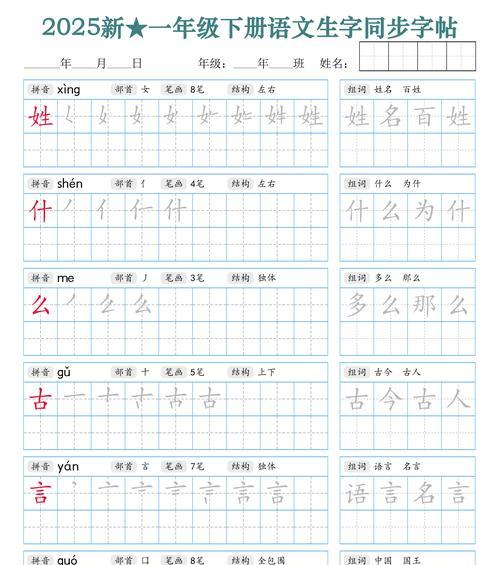 2025新★一年级下册语文生字同步字帖
年 月 日 年级： 年 班 姓名：
拼音 xìng 部首 女 笔画 8笔 结构 左右 组词 姓名 百姓
姓 姓名百姓
拼音 shén 部首 亻 笔画 4笔 结构 左右 组词 什么 为什
什 什么为什
拼音 me 部首 丿 笔画 3笔 结构 独体 组词 多么 那么
么 多么那么
拼音 gǔ 部首 十 笔画 5笔 结构 上下 组词 古今 古人
古 古今古人
拼音 yán 部首 言 笔画 7笔 结构 独体 组词 语言 名言
言 语言名言
拼音 guó 部首 口 笔画 8笔 结构 全包围 组词 中国 国王